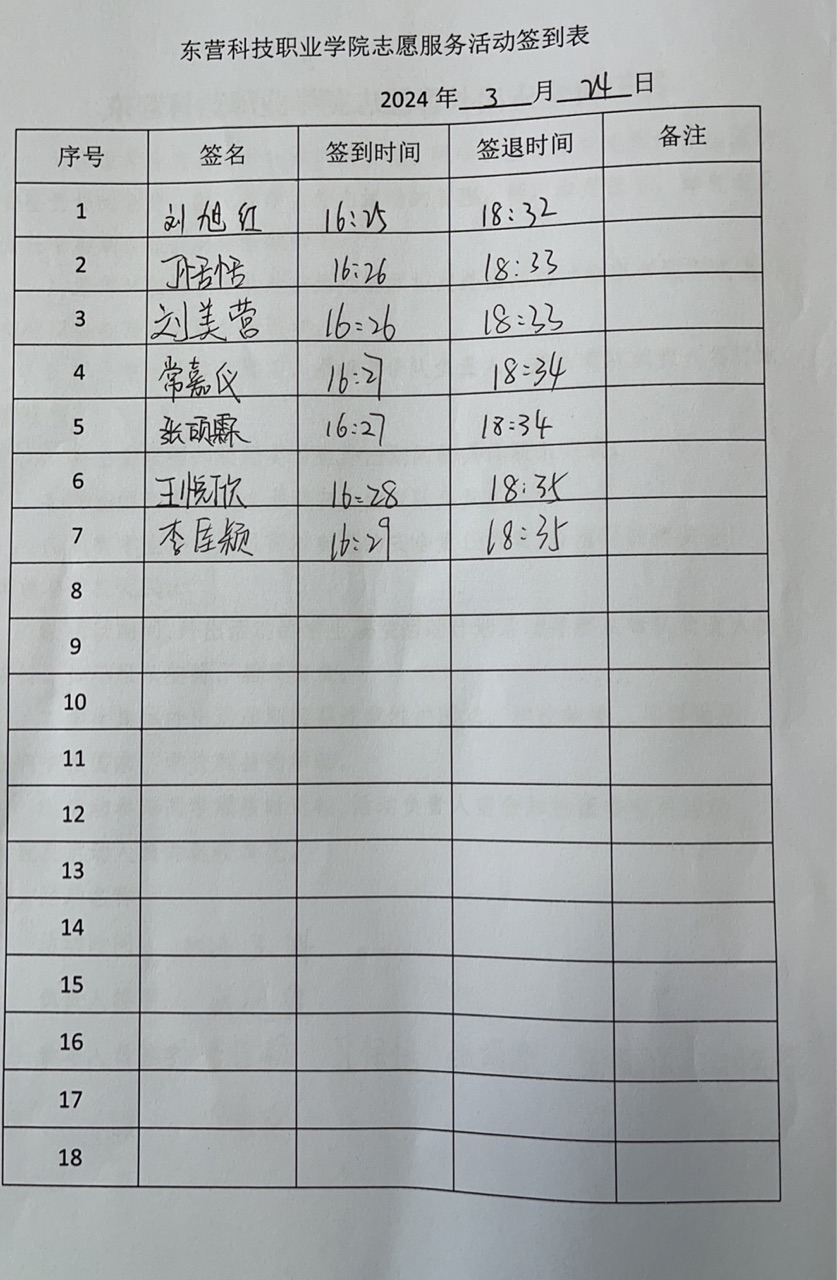 东营科技职业学院志愿服务活动签到表
2024 年 3 月 24 日
序号 签名 签到时间 签退时间 备注
1 刘旭红 16:25 18:32
2 16:26 18:33
3 刘美营 16:26 18:33
4 常嘉仪 16:27 18:34
5 16:27 18:34
6 王悦欣 16:28 18:35
7 李佳颖 16:29 18:35
8
9
10
11
12
13
14
15
16
17
18